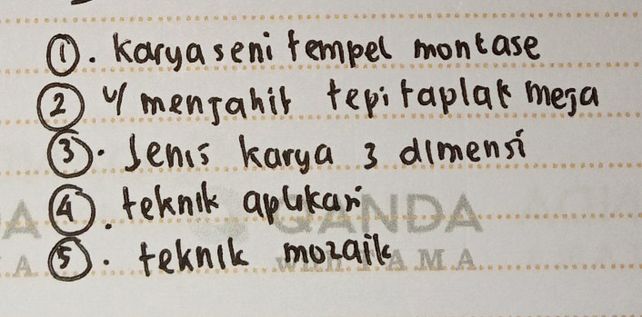 ①. Karya seni tempel montase
② u/ menjahit tepi taplak meja
③. Jenis karya 3 dimensi
④. teknik aplikasi
⑤. teknik mozaik
QANDA